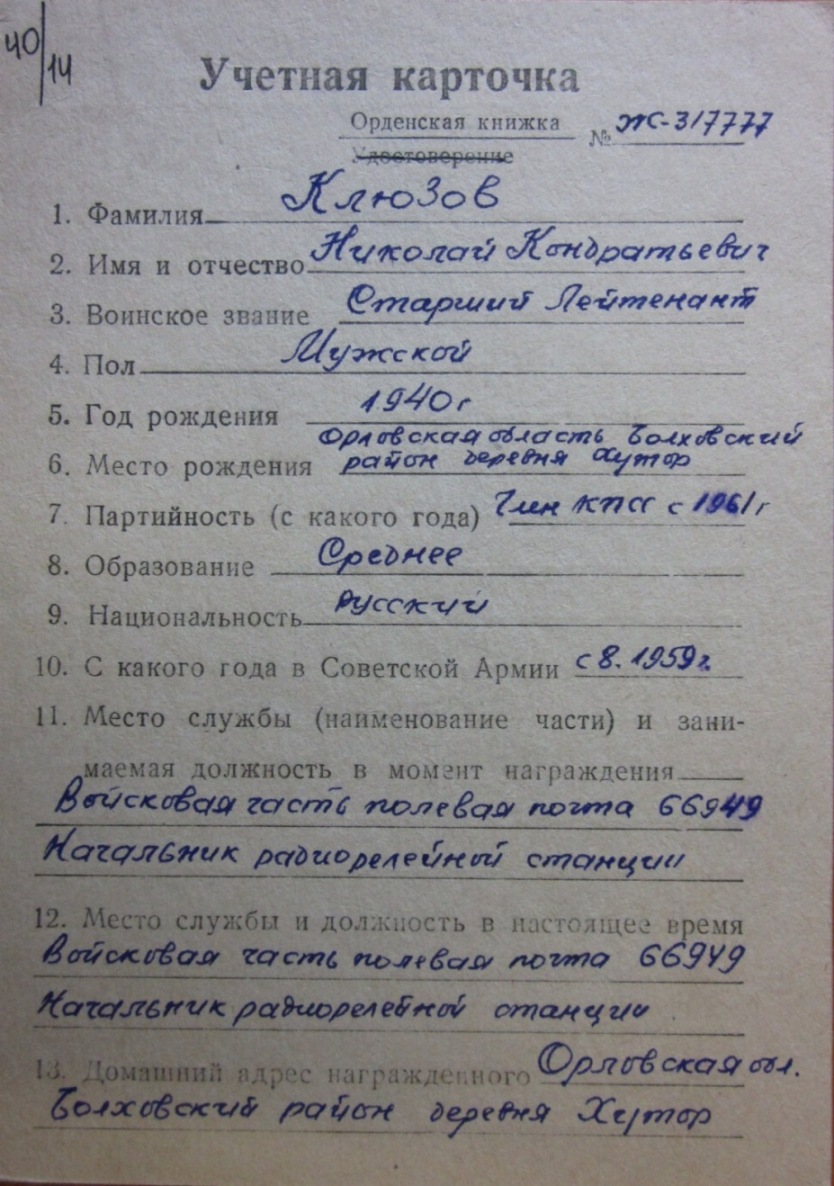 40/14
Учетная карточка
Орденская книжка № Ж-317777
Удостоверение
1. Фамилия Клюзов
2. Имя и отчество Николай Кондратьевич
3. Воинское звание Старший Лейтенант
4. Пол Мужской
5. Год рождения 1940 г
Орловская область Болховский
6. Место рождения район деревня Хутор
7. Партийность (с какого года) Член КПСС с 1961 г
8. Образование Среднее
9. Национальность Русский
10. С какого года в Советской Армии с 8. 1959 г.
11. Место службы (наименование части) и зани-
маемая должность в момент награждения
Войсковая часть полевая почта 66949
Начальник радиорелейной станции
12. Место службы и должность в настоящее время
Войсковая часть полевая почта 66949
Начальник радиорелейной станции
13. Домашний адрес награжденного Орловская обл.
Болховский район деревня Хутор